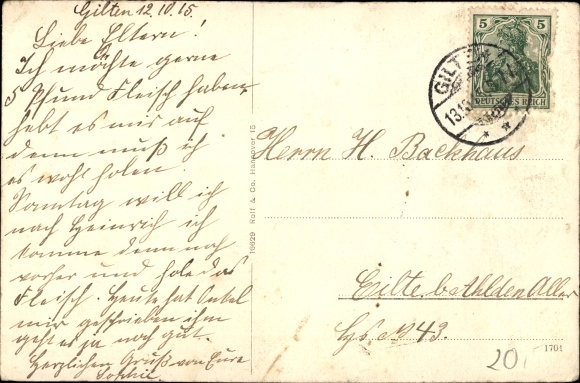 Gilten 12.10.15.
Liebe Eltern!
Ich möchte gerne
5 Pfund Fleisch haben.
hebt es mir auf
denn muß ich
es wohl holen.
Sonntag will ich
nach Heinrich ich
komme denn noch
vorher und hole das
Fleisch. Heute hat Onkel
mir geschrieben ihm
geht es ja noch gut.
Herzlichen Gruß von Eure
Sophie.
10629 Rolf & Co. Hannover 15
5 5
DEUTSCHES REICH
GILTEN
13.10
Herrn H. Backhaus
Eilte b Ahlden Aller
Hs. № 43.
1701
20.-